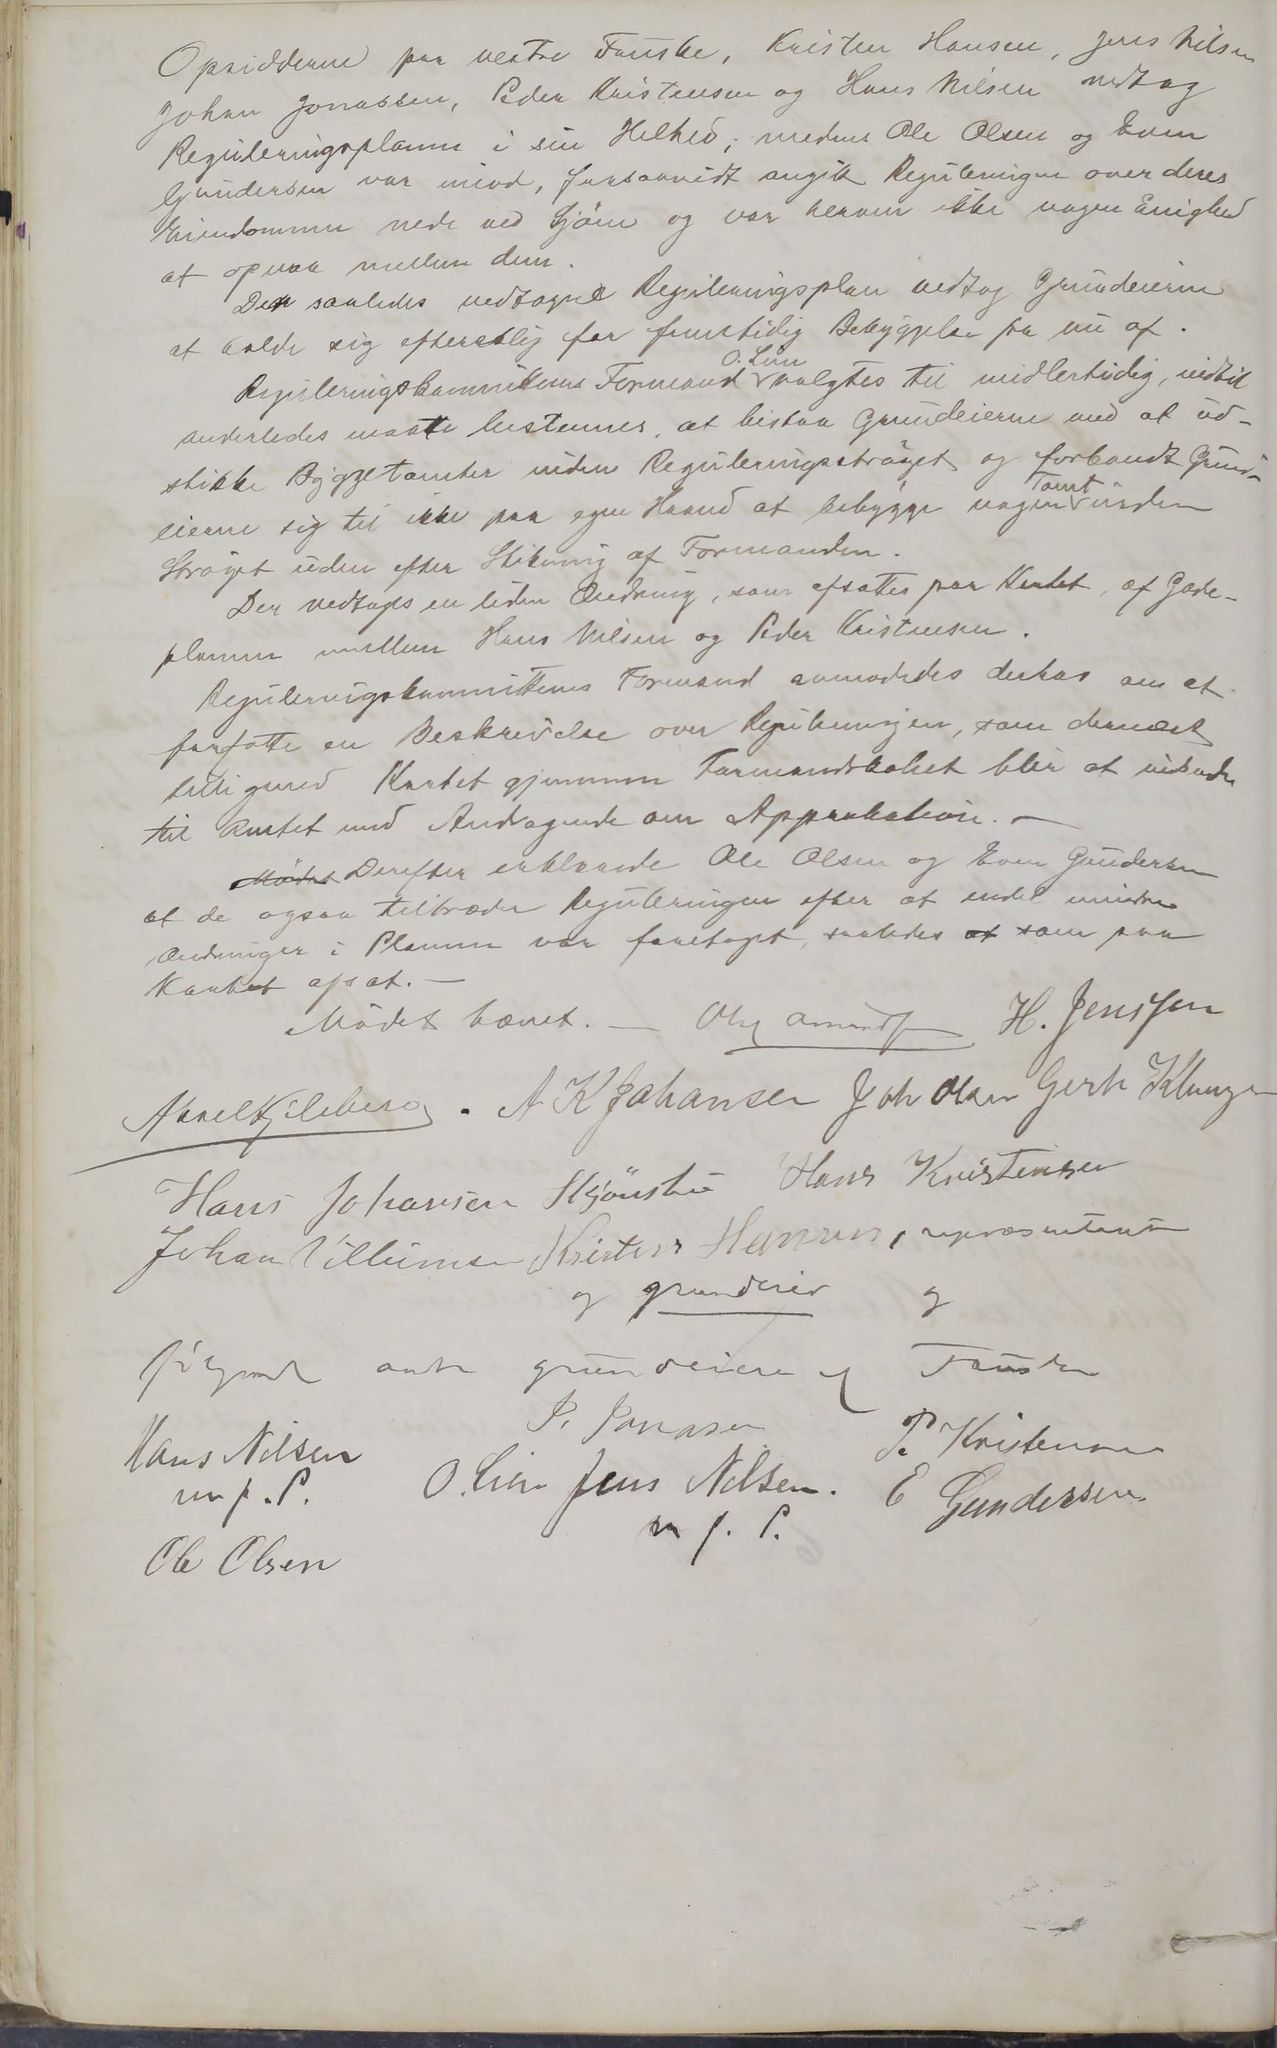 Opsidderne paa vestre Fauske, Kristen Hansen, Jens Nilsen
Johan Jonassen, Peder Kristensen og Hans Nilsen vedtog
Reguleringsplanen i sin Helhed; medens Ole Olsen og Even
Gundersen var imod, forsaavidt angik Reguleringen over deres
Eiendommen nede ved Sjöen og var herom ikke nogen Enighed
at opnaa mellem dem.
Den saaledes vedtagne Reguleringsplan vedtog Grundeierne
at holde sig efterrettelig for fremtidig Bebyggelse fra nu af.
Reguleringskommitteens Formand O. Lien valgtes til midlertidig, indtil
anderledes maatte bestemmes, at bistaa Grundeierne med at ud-
stikke Byggetomter inden Reguleringsströget og forbandt Grund-
eierne sig til ikke paa egen Haand at bebygge nogen Tomt inden
Ströget uden efter Stikning af Formanden.
Der vedtoges en liden Ændring, som afsattes paa Kartet, af Gade-
planen mellem Hans Nilsen og Peder Kristensen.
Reguleringskommitteens Formand anmodedes derhos om at
forfatte en Beskrivelse over Reguleringen, som dernæst
tilligemed Kartet gjennem Formandskabet blir at indsende
til Amtet med Andragende om Approbation. —
Mödet Derefter erklærede Ole Olsen og Even Gundersen
at de ogsaa tiltræder Reguleringen efter at endel mindre
Ændringer i Planen var foretaget, saaledes at som paa
Kartet afsat. —
Mödet hævet. — H. Jenssen
Axel Kjeldberg. A K Johansen Joh Olsen Gerh Klunge
Hans Johansen Skjönstu Hans Kristensen
Johan Villumsen Kristen Hansen, repræsentant
og grundeier og
fölgende andre grundeiere af Fauske
Hans Nilsen J. Jonassen P. Kristensen
m. f. P. O. Lien Jens Nilsen. E Gundersen
m f. P.
Ole Olsen